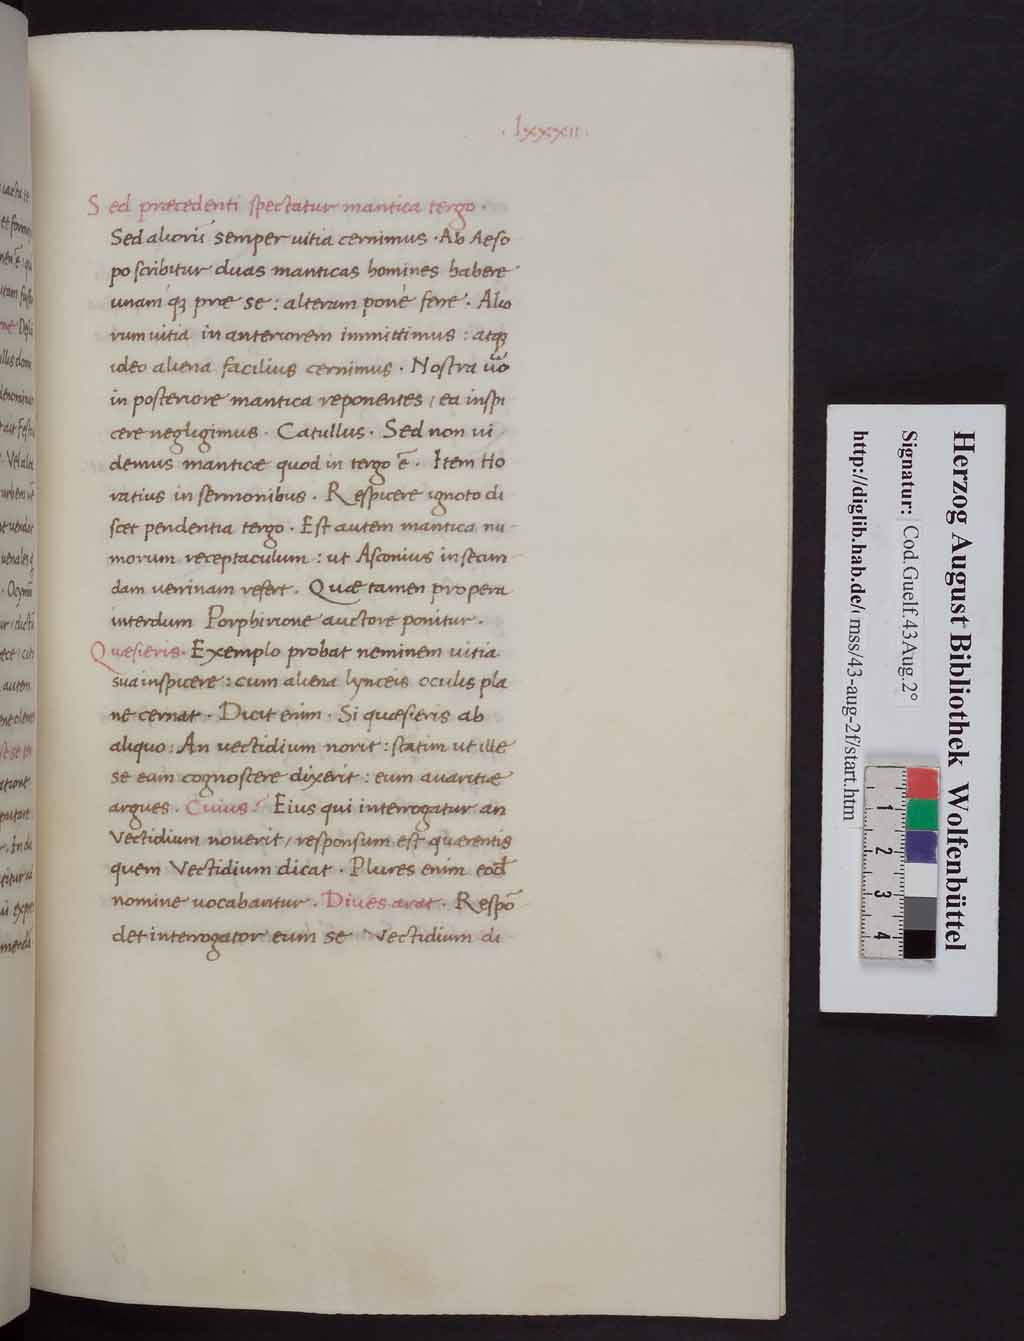 · lxxxii ·
Sed præcedenti spectatur mantica tergo ·
Sed alioru᷒ semper uitia cernimus · Ab Aeso
po scribitur duas manticas homines habere
unam q3 præ se : alteram pone ferre · Alio
rum uitia in anteriorem immittimus : atq3
ideo aliena facilius cernimus · Nostra uo᷒
in posteriore mantica reponentes / ea inspi
cere negligimus · Catullus · Sed non ui
demus manticæ quod in tergo ē · Item Ho
ratius in sermonibus · Respicere ignoto di
scet pendentia tergo · Est autem mantica nu
morum receptaculum : ut Asconius in secun
dam uerrinam refert · Quæ tamen pro pera
interdum Porphirione auctore ponitur ·
Quæsieris · Exemplo probat neminem uitia
sua inspicere : cum aliena lynceis oculis pla
ne cernat · Dicit enim · Si quæsieris ab
aliquo : An uectidium norit : statim ut ille
se eam cognoscere dixerit : eum auaritiæ
argues · Cuius ? Eius qui interrogatur an
Vectidium nouerit / responsum est quærentis
quem Vectidium dicat · Plures enim eod̄
nomine uocabantur · Diues arat · Respō
det interrogator eum se Vectidium di
Herzog August Bibliothek Wolfenbüttel
Signatur: Cod. Guelf. 43 Aug. 2°
http://diglib.hab.de/ mss/43-aug-2f/start.htm
1 2 3 4